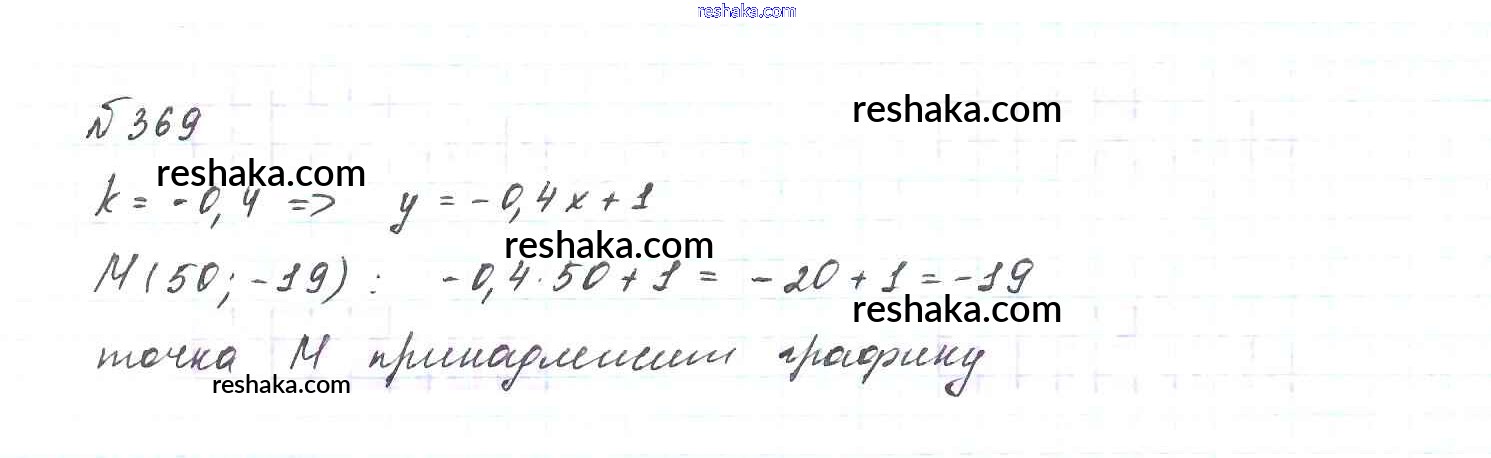 reshaka.com
№369
reshaka.com
reshaka.com
k = -0,4 => y = -0,4x + 1
reshaka.com
M(50; -19): -0,4·50 + 1 = -20 + 1 = -19
reshaka.com
точка M принадлежит графику
reshaka.com